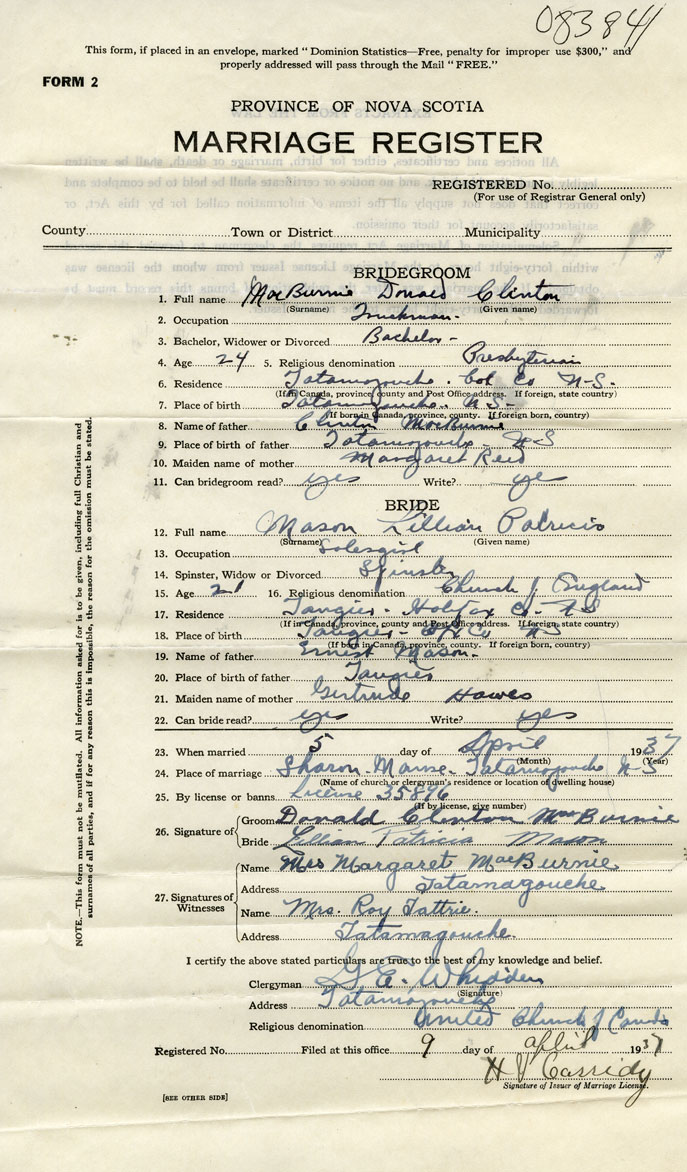 08384
This form, if placed in an envelope, marked "Dominion Statistics—Free, penalty for improper use $300," and
properly addressed will pass through the Mail "FREE."
FORM 2
PROVINCE OF NOVA SCOTIA
MARRIAGE REGISTER
REGISTERED No.
(For use of Registrar General only)
County Town or District Municipality
BRIDEGROOM
1. Full name MacBurnie Donald Clinton
(Surname) (Given name)
2. Occupation Truckman
3. Bachelor, Widower or Divorced Bachelor
4. Age 24 5. Religious denomination Presbyterian
6. Residence Tatamagouche. Col. Co N-S.
(If in Canada, province, county and Post Office address. If foreign, state country)
7. Place of birth Tatamagouche. N S-
(If born in Canada, province, county. If foreign born, country)
8. Name of father Clinton MacBurnie
9. Place of birth of father Tatamagouche N-S
10. Maiden name of mother Margaret Reid
11. Can bridegroom read? yes Write? yes
BRIDE
12. Full name Mason Lillian Patricia
(Surname) (Given name)
13. Occupation Salesgirl
14. Spinster, Widow or Divorced Spinster
15. Age 21 16. Religious denomination Church of England
17. Residence Tangier- Halifax Co- N-S
(If in Canada, province, county and Post Office address. If foreign, state country)
18. Place of birth Tangier- Hfx Co N S
(If born in Canada, province, county. If foreign born, country)
19. Name of father Ernest Mason-
20. Place of birth of father Tangier
21. Maiden name of mother Gertrude Hawes
22. Can bride read? yes Write? yes
23. When married 5 day of April 1937
(Month) (Year)
24. Place of marriage Sharon-Manse- Tatamagouche N-S
(Name of church or clergyman's residence or location of dwelling house)
25. By license or banns License 35896
(If by license, give number)
26. Signature of Groom Donald Clinton MacBurnie
Bride Lillian Patricia Mason
27. Signatures of Witnesses
Name Mrs Margaret MacBurnie
Address Tatamagouche
Name Mrs. Roy Tattrie.
Address Tatamagouche.
I certify the above stated particulars are true to the best of my knowledge and belief.
Clergyman G. E. Whidden
(Signature)
Address Tatamagouche
Religious denomination United Church of Canada
Registered No. Filed at this office 9 day of april 1937
H V Cassidy
Signature of Issuer of Marriage License.
[SEE OTHER SIDE]
NOTE.—This form must not be mutilated. All information asked for is to be given, including full Christian and
surnames of all parties, and if for any reason this is impossible, the reason for the omission must be stated.